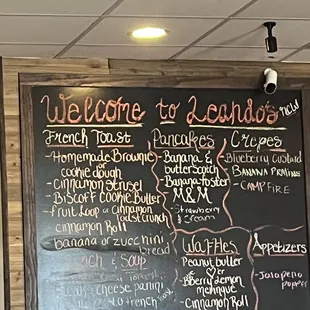 Welcome to Leando's
NEW
French Toast
-Homemade Brownie
or
cookie dough
-Cinnamon Strusel
-Biscoff Cookie Butter
-Fruit Loop or Cinnamon
Toast Crunch
Cinnamon Roll
banana or zucchini
bread
& Soup
cheese panini
French
Pancakes
-Banana &
butterscotch
-Banana foster
-M&M
-Strawberry
& cream
Waffles
Peanut butter
or
Lemon
meringue
-Cinnamon Roll
Crepes
Blueberry custard
BANANA PRALINE
-CAMPFIRE
Appetizers
-Jalapeno
poppers